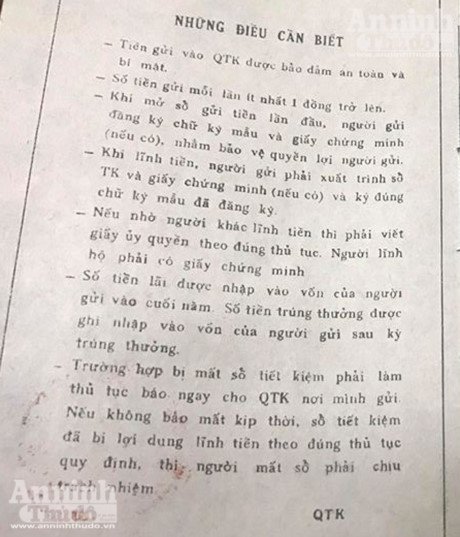 NHỮNG ĐIỀU CẦN BIẾT
— Tiền gửi vào QTK được bảo đảm an toàn và
bí mật.
— Số tiền gửi mỗi lần ít nhất 1 đồng trở lên.
— Khi mở sổ gửi tiền lần đầu, người gửi
đăng ký chữ ký mẫu và giấy chứng minh
(nếu có), nhằm bảo vệ quyền lợi người gửi.
— Khi lĩnh tiền, người gửi phải xuất trình sổ
TK và giấy chứng minh (nếu có) và ký đúng
chữ ký mẫu đã đăng ký.
— Nếu nhờ người khác lĩnh tiền thì phải viết
giấy ủy quyền theo đúng thủ tục. Người lĩnh
hộ phải có giấy chứng minh
— Số tiền lãi được nhập vào vốn của người
gửi vào cuối năm. Số tiền trúng thưởng được
ghi nhập vào vốn của người gửi sau kỳ
trúng thưởng.
— Trường hợp bị mất sổ tiết kiệm phải làm
thủ tục báo ngay cho QTK nơi mình gửi.
Nếu không báo mất kịp thời, sổ tiết kiệm
đã bị lợi dụng lĩnh tiền theo đúng thủ tục
quy định, thì người mất sổ phải chịu
trách nhiệm
QTK
Anninh
Thủđô
www.anninhthudo.vn